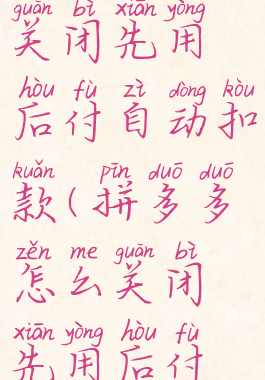 guān bì xiān yòng
关闭先用
hòu fù zì dòng kòu
后付自动扣
kuǎn pīn duō duō
款(拼多多
zěn me guān bì
怎么关闭
xiān yòng hòu fù
先用后付